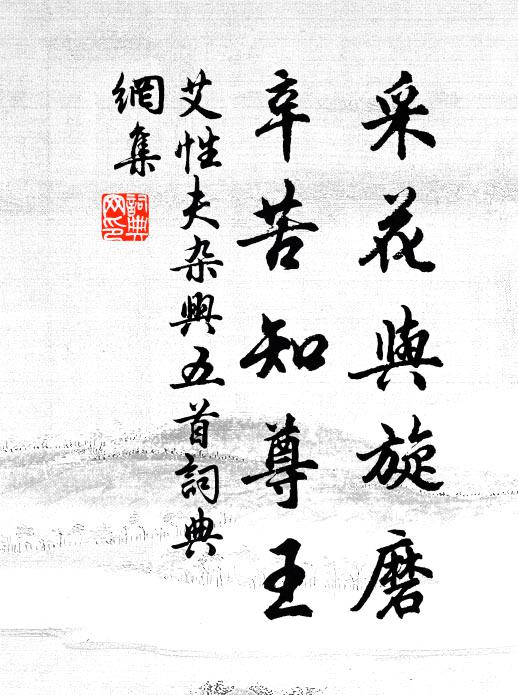 采花與旋磨
辛苦知尊王
艾性夫杂興五首詞典
網集
詞典网印